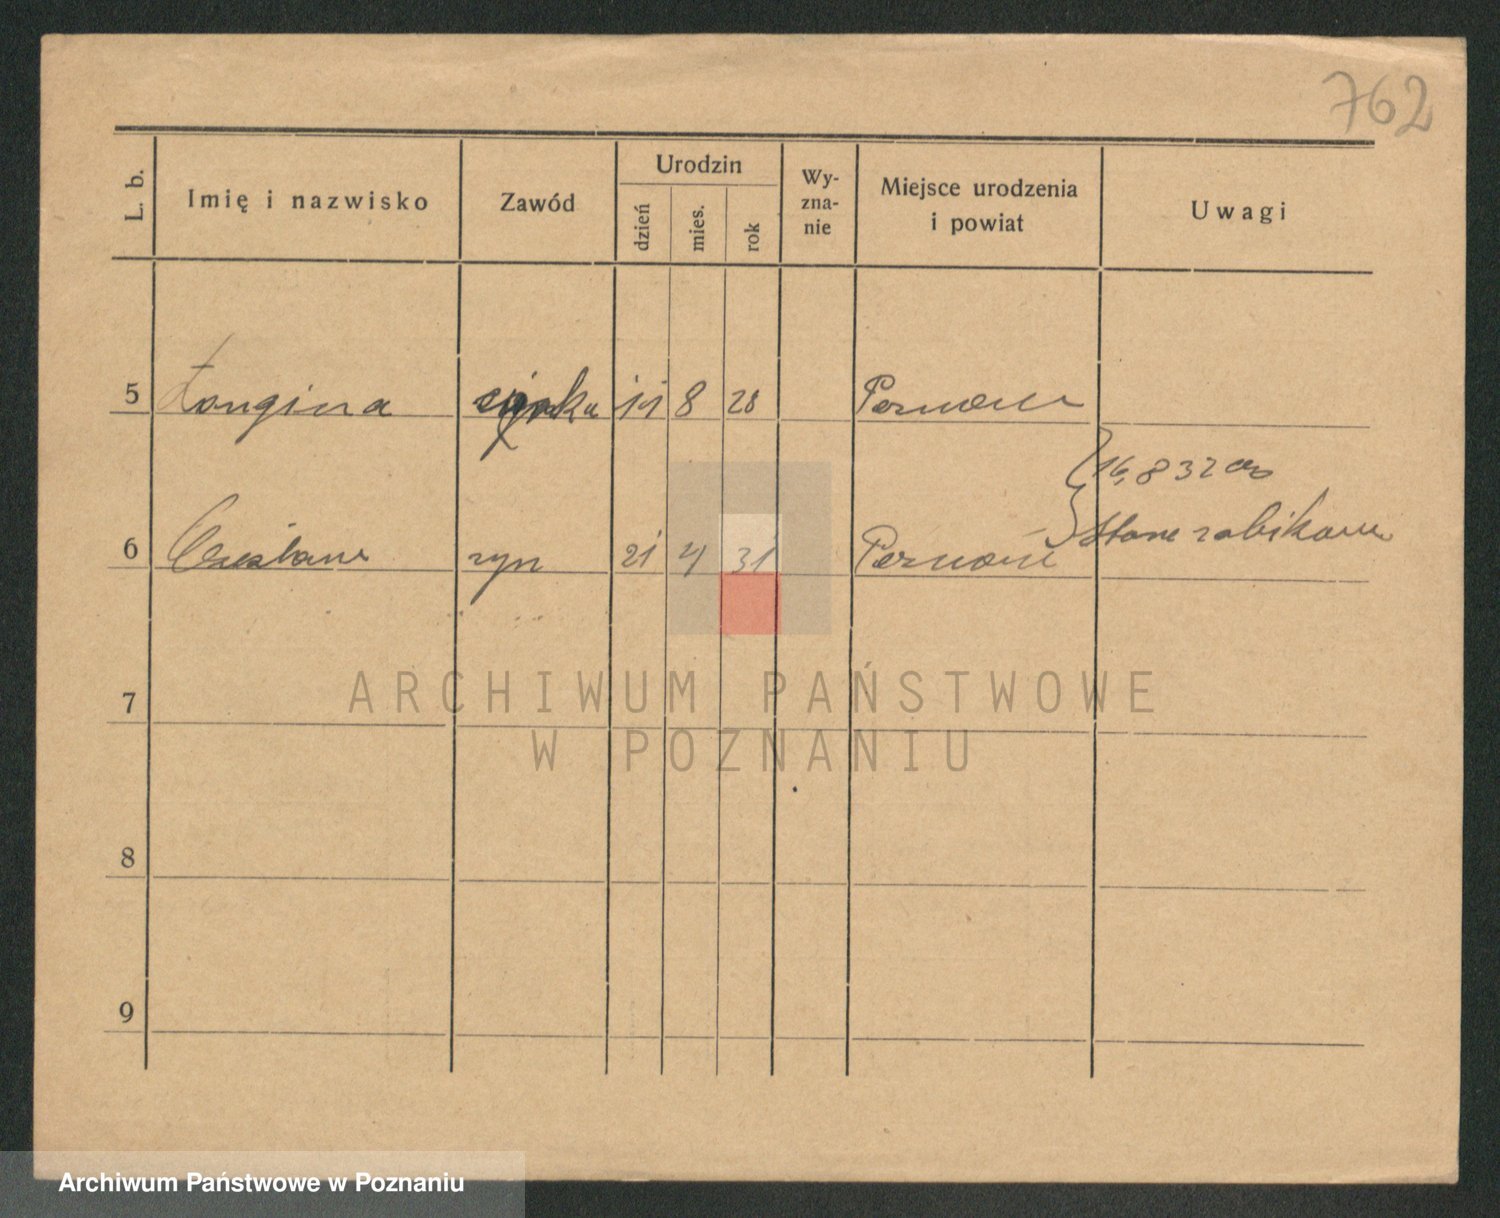 762
L. b.
Imię i nazwisko
Zawód
Urodzin
dzień
mies.
rok
Wy-
zna-
nie
Miejsce urodzenia
i powiat
Uwagi
5 Longina córka 8 28 Poznań
16.8 32
6 Czesław syn 21 4 31 Poznań
7
ARCHIWUM PAŃSTWOWE
W POZNANIU
8
9
Archiwum Państwowe w Poznaniu